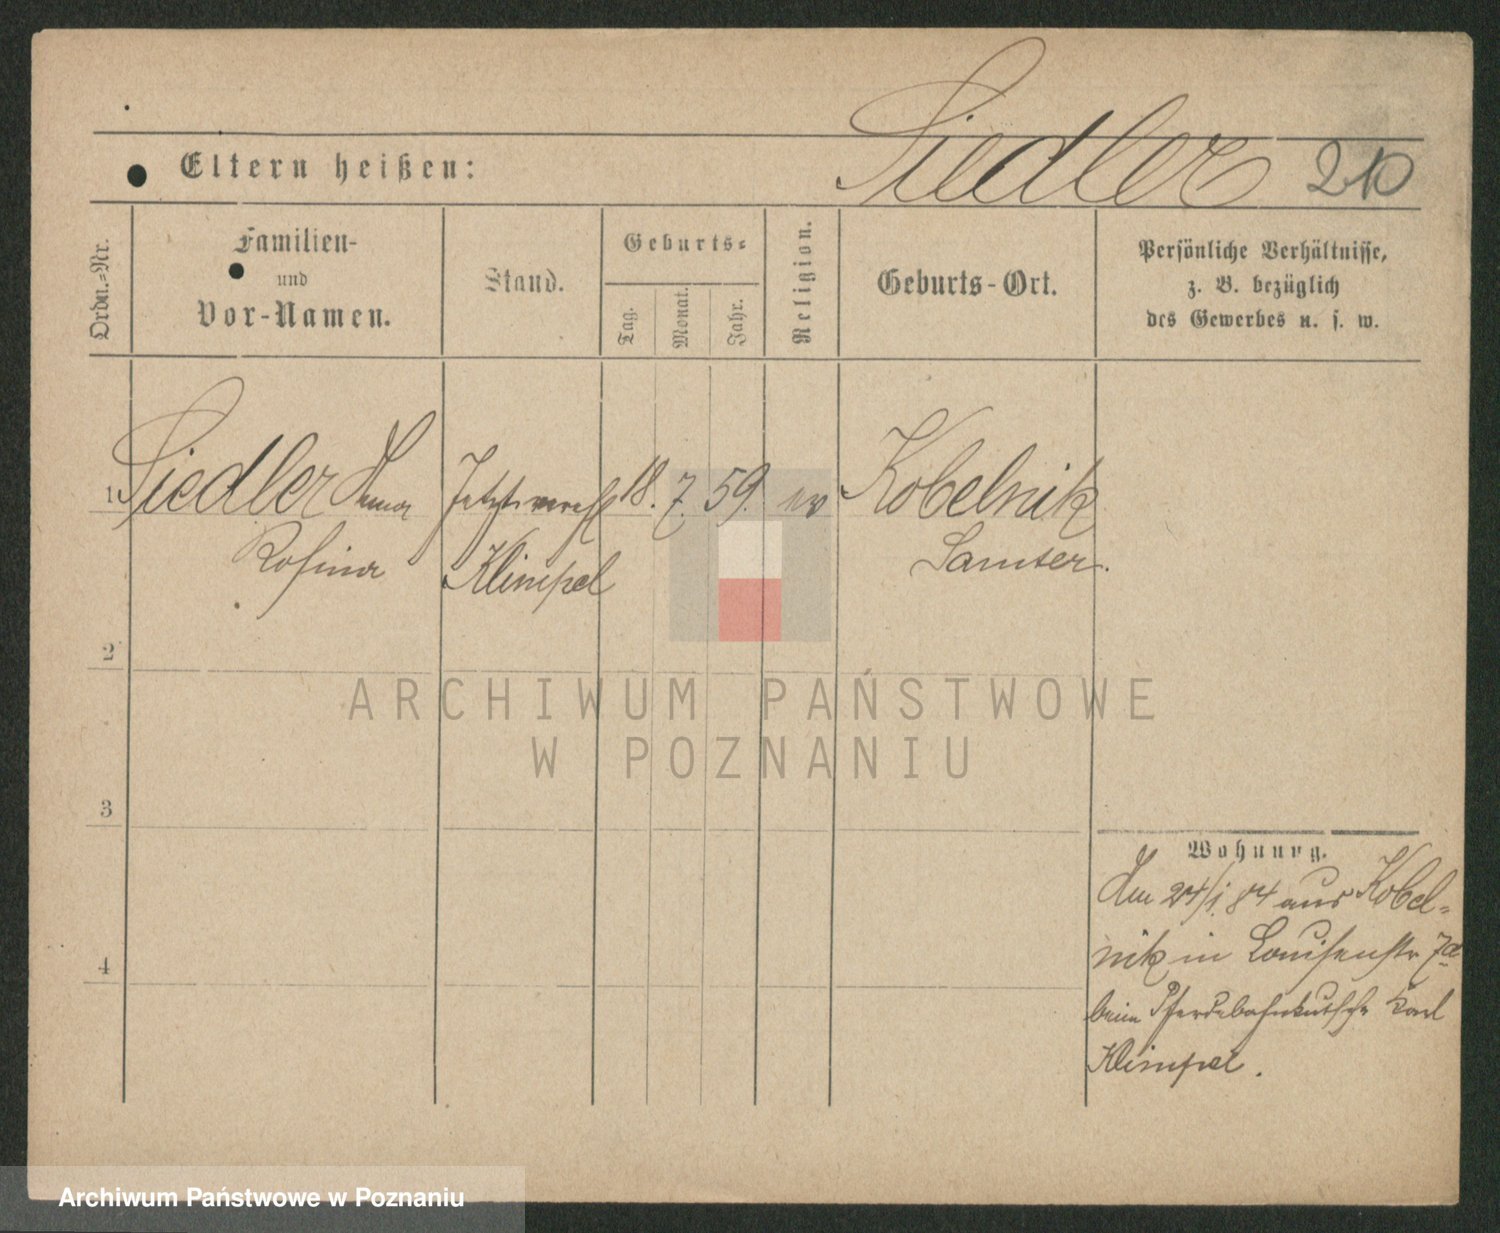 Siedler 210
Eltern heißen:
Ordn.-Nr.
Familien-
und
Vor-Namen.
Stand.
Geburts-
Tag.
Monat.
Jahr.
Religion.
Geburts-Ort.
Persönliche Verhältnisse,
z. B. bezüglich
des Gewerbes u. s. w.
1 Siedler Anna Jetzt verehl 18. 7. 59. ev Kobelnik
Rosina Klimpel Samter.
2
3
4
ARCHIWUM PAŃSTWOWE
W POZNANIU
Wohnung.
Den 24/1. 84 aus Kobel-
nik in Louisenstr 7a
beim Pferdebahnkutscher Karl
Klimpel.
Archiwum Państwowe w Poznaniu